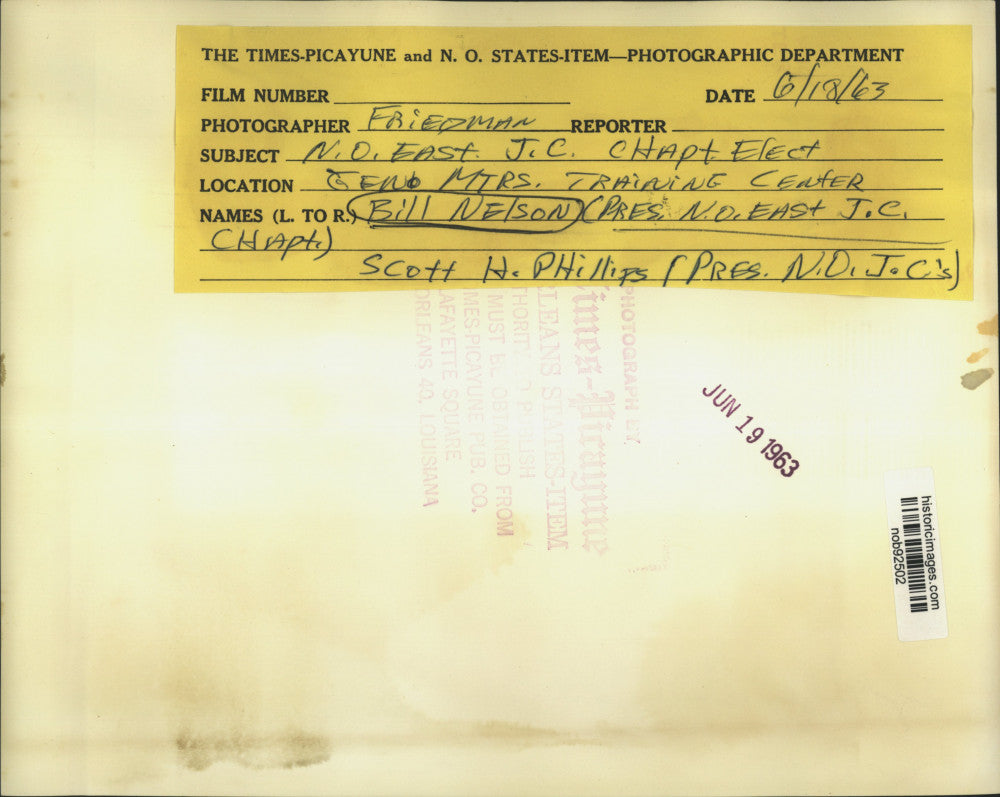 THE TIMES-PICAYUNE and N. O. STATES-ITEM—PHOTOGRAPHIC DEPARTMENT
FILM NUMBER
DATE 6/18/63
PHOTOGRAPHER FRIEDMAN REPORTER
SUBJECT N.O. EAST. J.C. CHAPT Elect
LOCATION MTRS. TRAINING CENTER
NAMES (L. TO R.) Bill NELSON (PRES. N.O. EAST J.C.
CHAPT.)
SCOTT H. PHillips (PRES. N.O. J.C's)
PHOTOGRAPH BY
Times-Picayune
ORLEANS STATES-ITEM
THORITY TO PUBLISH
MUST BE OBTAINED FROM
MES-PICAYUNE PUB. CO.
AFAYETTE SQUARE
ORLEANS 40, LOUISIANA
JUN 19 1963
historicimages.com
nob92502